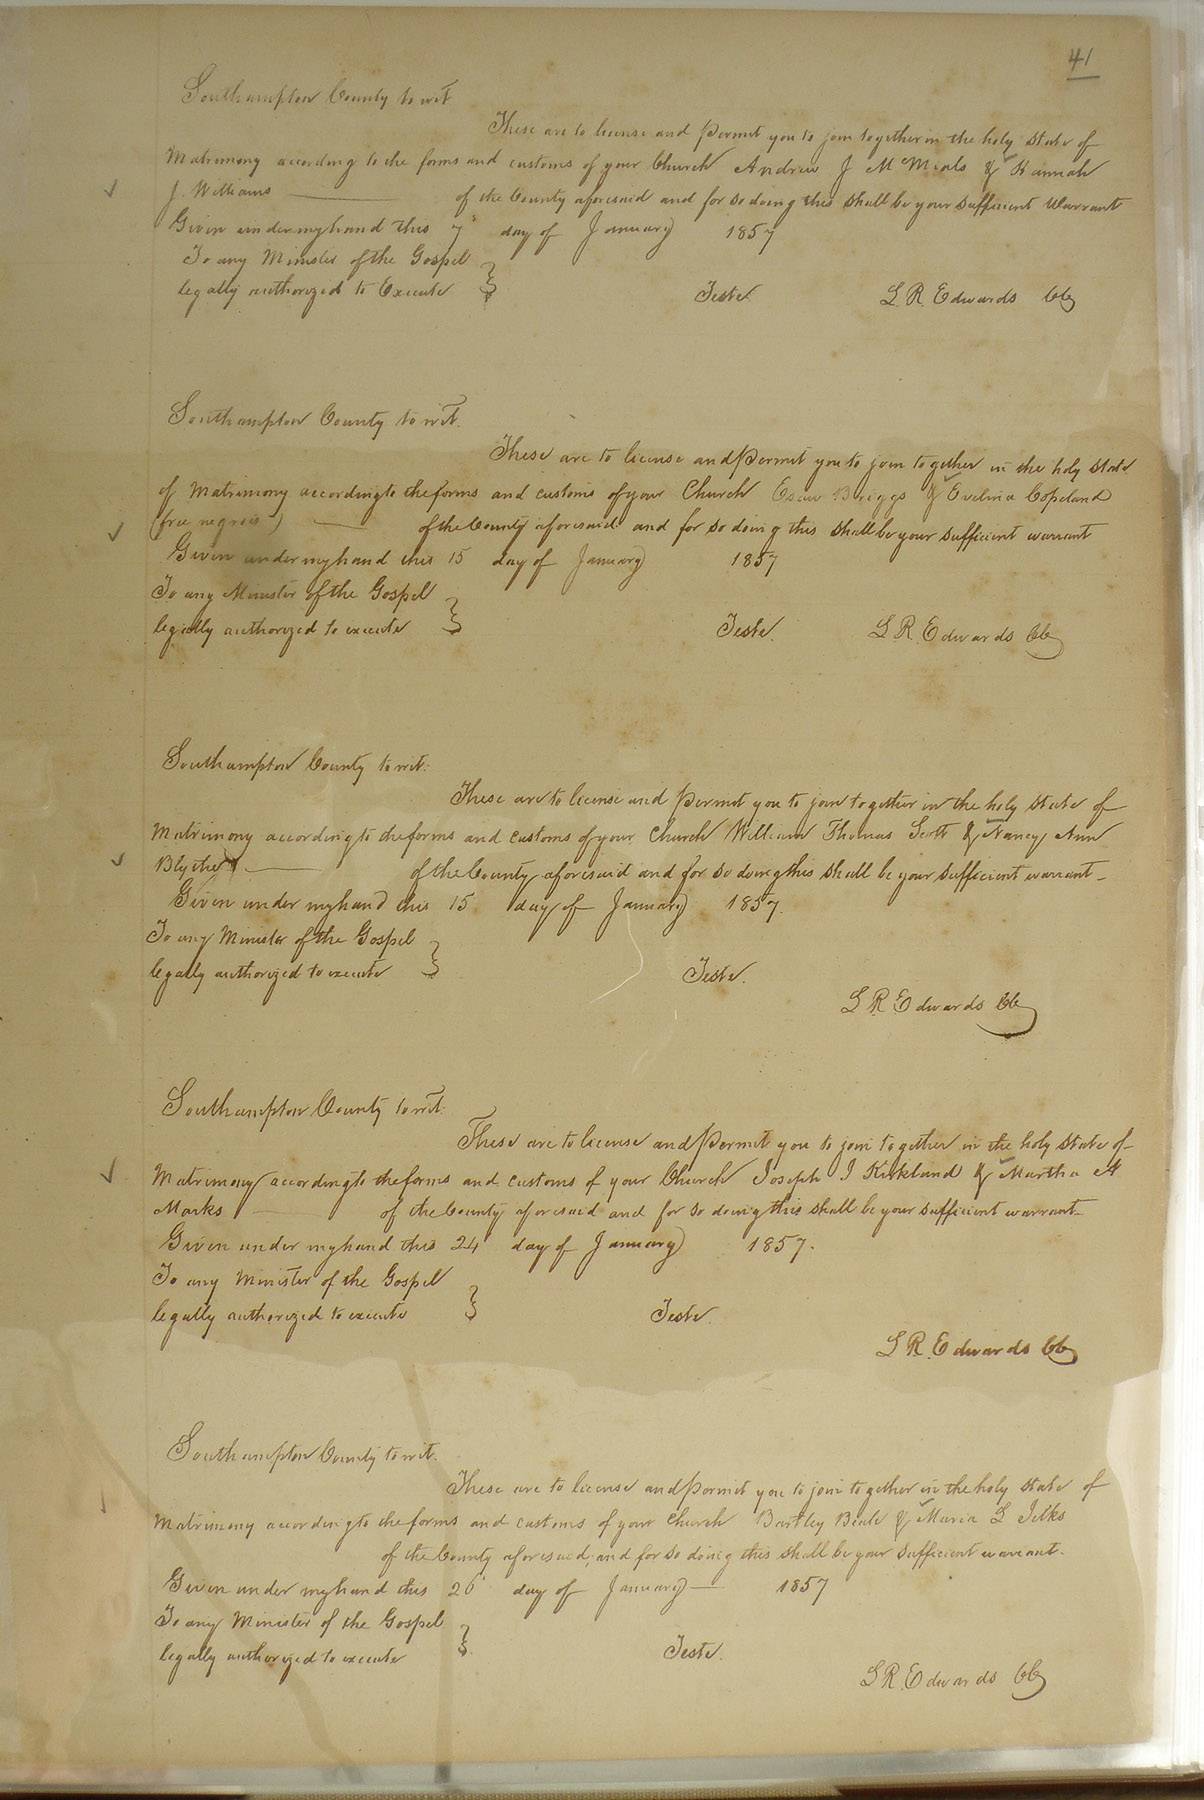 41
Southampton County to wit
These are to license and permit you to join together in the holy state of
Matrimony according to the forms and customs of your Church Andrew J McMeals & Hannah
J. Williams of the County aforesaid and for so doing this shall be your sufficient Warrant
Given under my hand this 7" day of January 1857
To any Minister of the Gospel
legally authorized to Execute Teste L. R. Edwards CC
Southampton County to wit.
These are to license and permit you to join together in the holy state
of Matrimony according to the forms and customs of your Church Esau Briggs & Evelina Copeland
(free negroes) of the County aforesaid and for so doing this shall be your sufficient warrant
Given under my hand this 15 day of January 1857
To any Minister of the Gospel
legally authorized to execute Teste. L R. Edwards CC
Southampton County to wit.
These are to license and permit you to join together in the holy state of
Matrimony according to the forms and customs of your Church William Thomas Scott & Nancy Ann
Blythe of the County aforesaid and for so doing this shall be your sufficient warrant
Given under my hand this 15 day of January 1857.
To any Minister of the Gospel
legally authorized to execute Teste.
L R. Edwards CC
Southampton County to wit.
These are to license and permit you to join together in the holy state of
Matrimony according to the forms and customs of your Church Joseph J Kirkland & Martha A
Marks of the County aforesaid and for so doing this shall be your sufficient warrant
Given under my hand this 24 day of January 1857.
To any Minister of the Gospel
legally authorized to execute Teste.
L R. Edwards CC
Southampton County to wit.
These are to license and permit you to join together in the holy state of
Matrimony according to the forms and customs of your Church Bartley Beale & Maria L
of the County aforesaid, and for so doing this shall be your sufficient warrant.
Given under my hand this 26 day of January 1857
To any Minister of the Gospel
legally authorized to execute Teste.
L R. Edwards CC